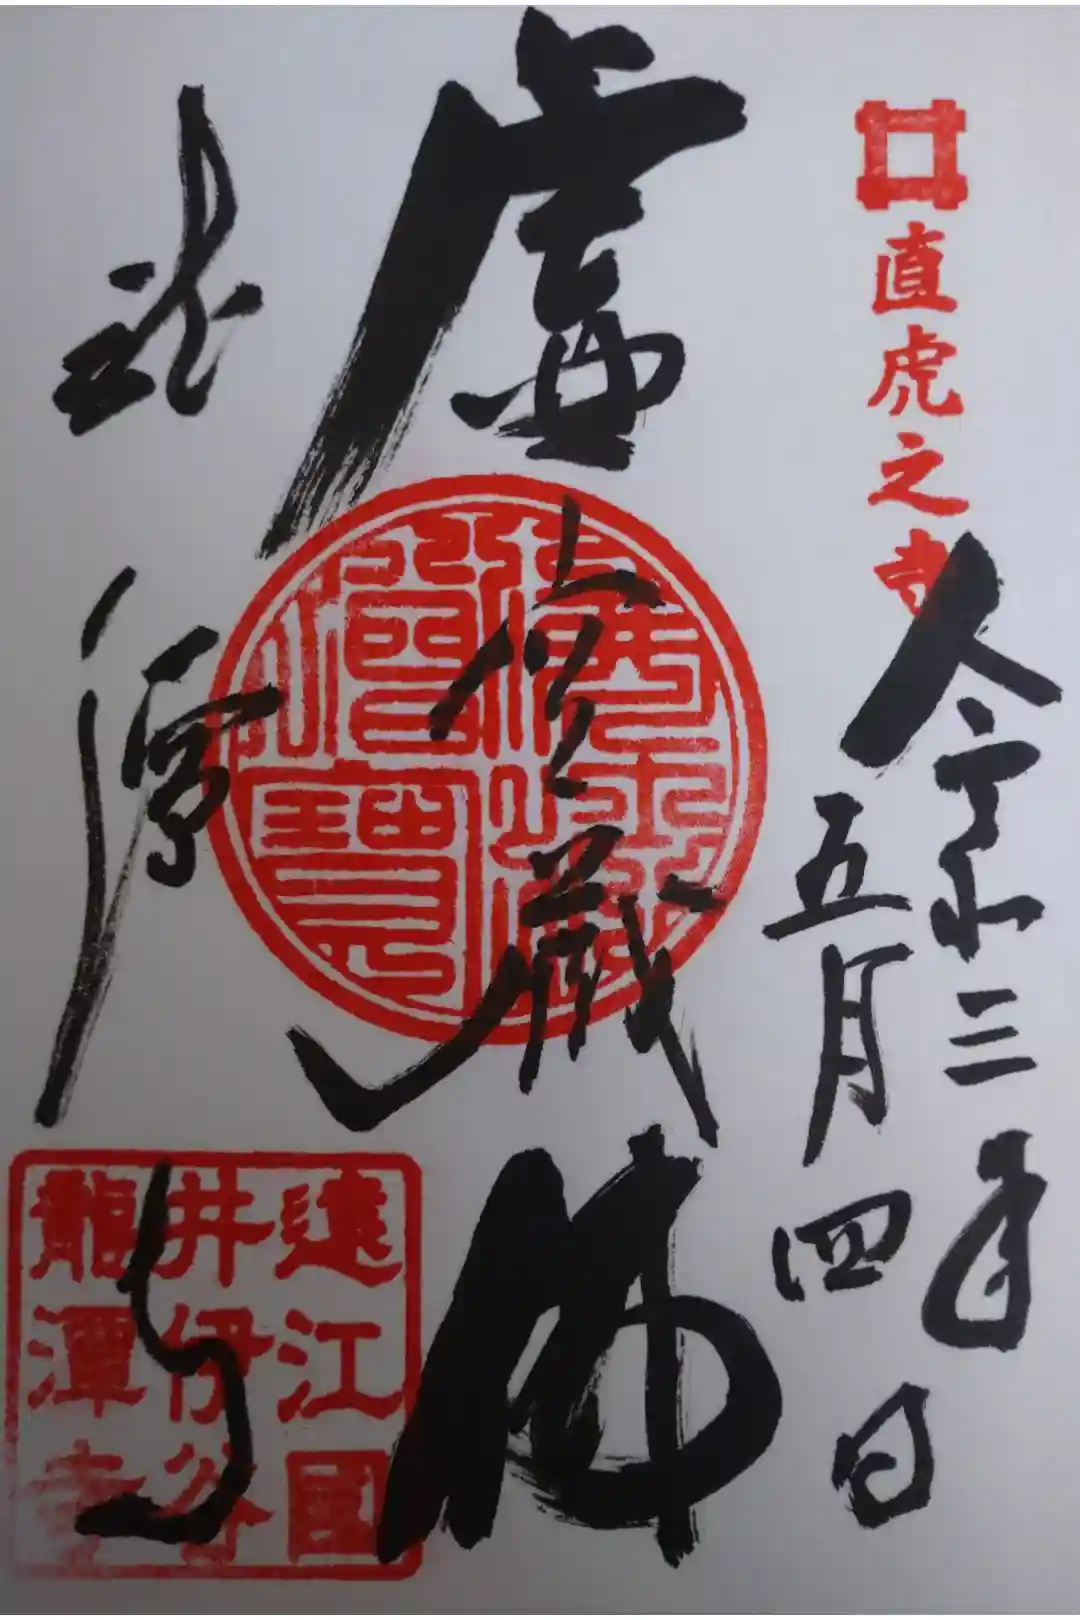 直虎之寺
令和三年
五月四日
虚空藏佛
佛法
僧寶
龍潭寺
遠江國
井伊谷
龍潭寺